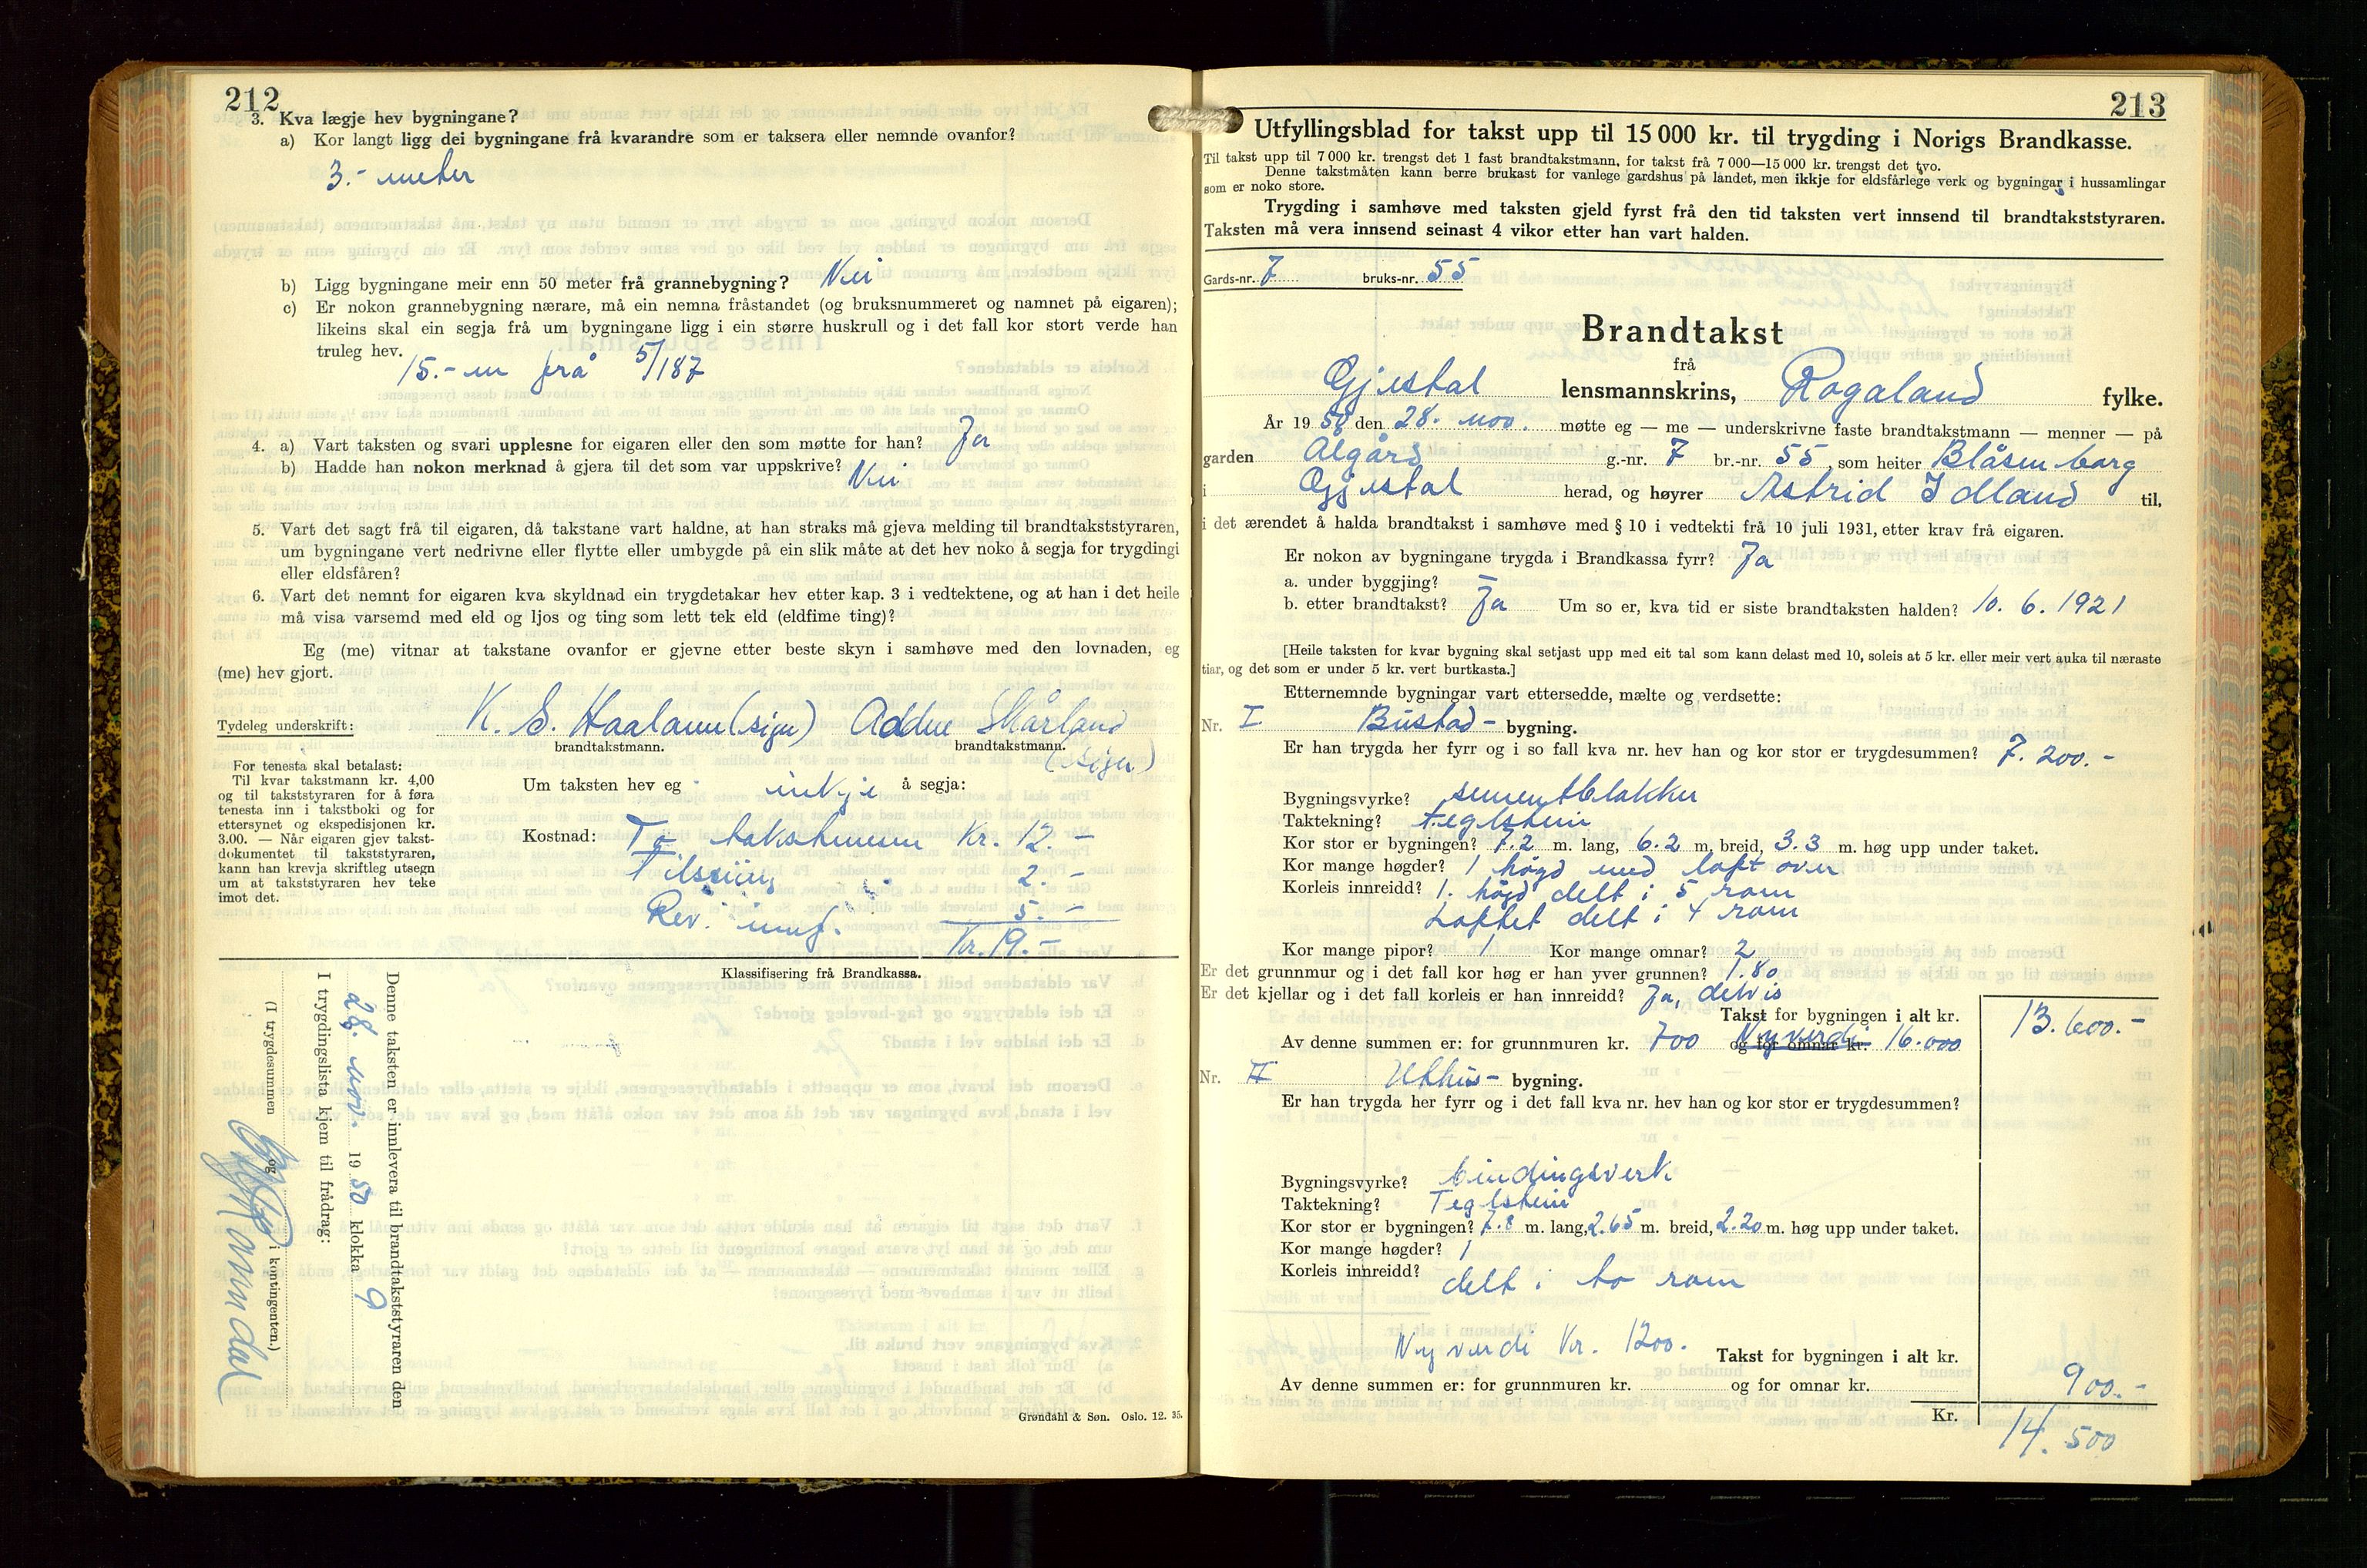 212
3. Kva lægje hev bygningane?
a) Kor langt ligg dei bygningane frå kvarandre som er taksera eller nemnde ovanfor?
3.- meter
b) Ligg bygningane meir enn 50 meter frå grannebygning? Nei
c) Er nokon grannebygning nærare, må ein nemna fråstandet (og bruksnummeret og namnet på eigaren);
likeins skal ein segja frå um bygningane ligg i ein større huskrull og i det fall kor stort verde han
truleg hev.
15.- m frå 5/187
4. a) Vart taksten og svari upplesne for eigaren eller den som møtte for han? Ja
b) Hadde han nokon merknad å gjera til det som var uppskrive? Nei
5. Vart det sagt frå til eigaren, då takstane vart haldne, at han straks må gjeva melding til brandtakststyraren,
um bygningane vert nedrivne eller flytte eller umbygde på ein slik måte at det hev noko å segja for trygdingi
eller eldsfåren?
6. Vart det nemnt for eigaren kva skyldnad ein trygdetakar hev etter kap. 3 i vedtektene, og at han i det heile
må visa varsemd med eld og ljos og ting som lett tek eld (eldfime ting)?
Eg (me) vitnar at takstane ovanfor er gjevne etter beste skyn i samhøve med den lovnaden, eg
(me) hev gjort.
Tydeleg underskrift: K. S. Haaland (sign) Addne Skårland
brandtakstmann. brandtakstmann. (sign)
For tenesta skal betalast:
Til kvar takstmann kr. 4,00
og til takststyraren for å føra
tenesta inn i takstboki og for
ettersynet og ekspedisjonen kr.
3.00. — Når eigaren gjev takst-
dokumentet til takststyraren,
kann han krevja skriftleg utsegn
um at takststyraren hev teke
imot det.
Um taksten hev eg inkje å segja:
Kostnad: To takstmenn Kr. 12.-
Tilsying 2.-
Rev. 5.-
Kr. 19.-
Klassifisering frå Brandkassa.
Denne taksten er innlevera til brandtakststyraren den
28. nov. 1950 klokka 9
I trygdingslista kjem til frådrag:
(I trygdesummen og i kontingenten.)
Grøndahl & Søn. Oslo. 12. 35.
213
Utfyllingsblad for takst upp til 15 000 kr. til trygding i Norigs Brandkasse.
Til takst upp til 7 000 kr. trengst det 1 fast brandtakstmann, for takst frå 7 000—15 000 kr. trengst det tvo.
Denne takstmåten kann berre brukast for vanlege gardshus på landet, men ikkje for eldsfårlege verk og bygningar i hussamlingar
som er noko store.
Trygding i samhøve med taksten gjeld fyrst frå den tid taksten vert innsend til brandtakststyraren.
Taksten må vera innsend seinast 4 vikor etter han vart halden.
Gards-nr. 7 bruks-nr. 55
Brandtakst
frå
Gjestal lensmannskrins, Rogaland fylke.
År 1950 den 28. nov. møtte eg — me — underskrivne faste brandtakstmann — menner — på
garden Ålgård g.-nr. 7 br.-nr. 55, som heiter Blåsenborg
i Gjestal herad, og høyrer Astrid Idland til,
i det ærendet å halda brandtakst i samhøve med § 10 i vedtekti frå 10 juli 1931, etter krav frå eigaren.
Er nokon av bygningane trygda i Brandkassa fyrr? Ja
a. under byggjing? –
b. etter brandtakst? Ja Um so er, kva tid er siste brandtaksten halden? 10. 6. 1921
[Heile taksten for kvar bygning skal setjast upp med eit tal som kann delast med 10, soleis at 5 kr. eller meir vert auka til næraste
tiar, og det som er under 5 kr. vert burtkasta.]
Etternemnde bygningar vart ettersedde, mælte og verdsette:
Nr. I Bustad- bygning.
Er han trygda her fyrr og i so fall kva nr. hev han og kor stor er trygdesummen? 7.200.-
Bygningsvyrke? sementblakker
Taktekning? teglstein
Kor stor er bygningen? 7.2 m. lang, 6.2 m. breid, 3.3 m. høg upp under taket.
Kor mange høgder? 1 høgd med loft over
Korleis innreidd? 1. høgd delt i 5 rom
Loftet delt i 4 rom
Kor mange pipor? 1 Kor mange omnar? 2
Er det grunnmur og i det fall kor høg er han yver grunnen? 1.80
Er det kjellar og i det fall korleis er han innreidd? Ja, delvis
Takst for bygningen i alt kr. 13.600.-
Av denne summen er: for grunnmuren kr. 700 og for omnar kr. Nyverdi 16.000
Nr. II Uthus- bygning.
Er han trygda her fyrr og i det fall kva nr. hev han og kor stor er trygdesummen?
Bygningsvyrke? bindingsverk
Taktekning? Teglstein
Kor stor er bygningen? 7.8 m. lang, 2.65 m. breid, 2.20 m. høg upp under taket.
Kor mange høgder? 1
Korleis innreidd? delt i to rom
Nyverdi Kr. 1200. Takst for bygningen i alt kr.
Av denne summen er: for grunnmuren kr. og for omnar kr. 900.-
Kr. 14.500